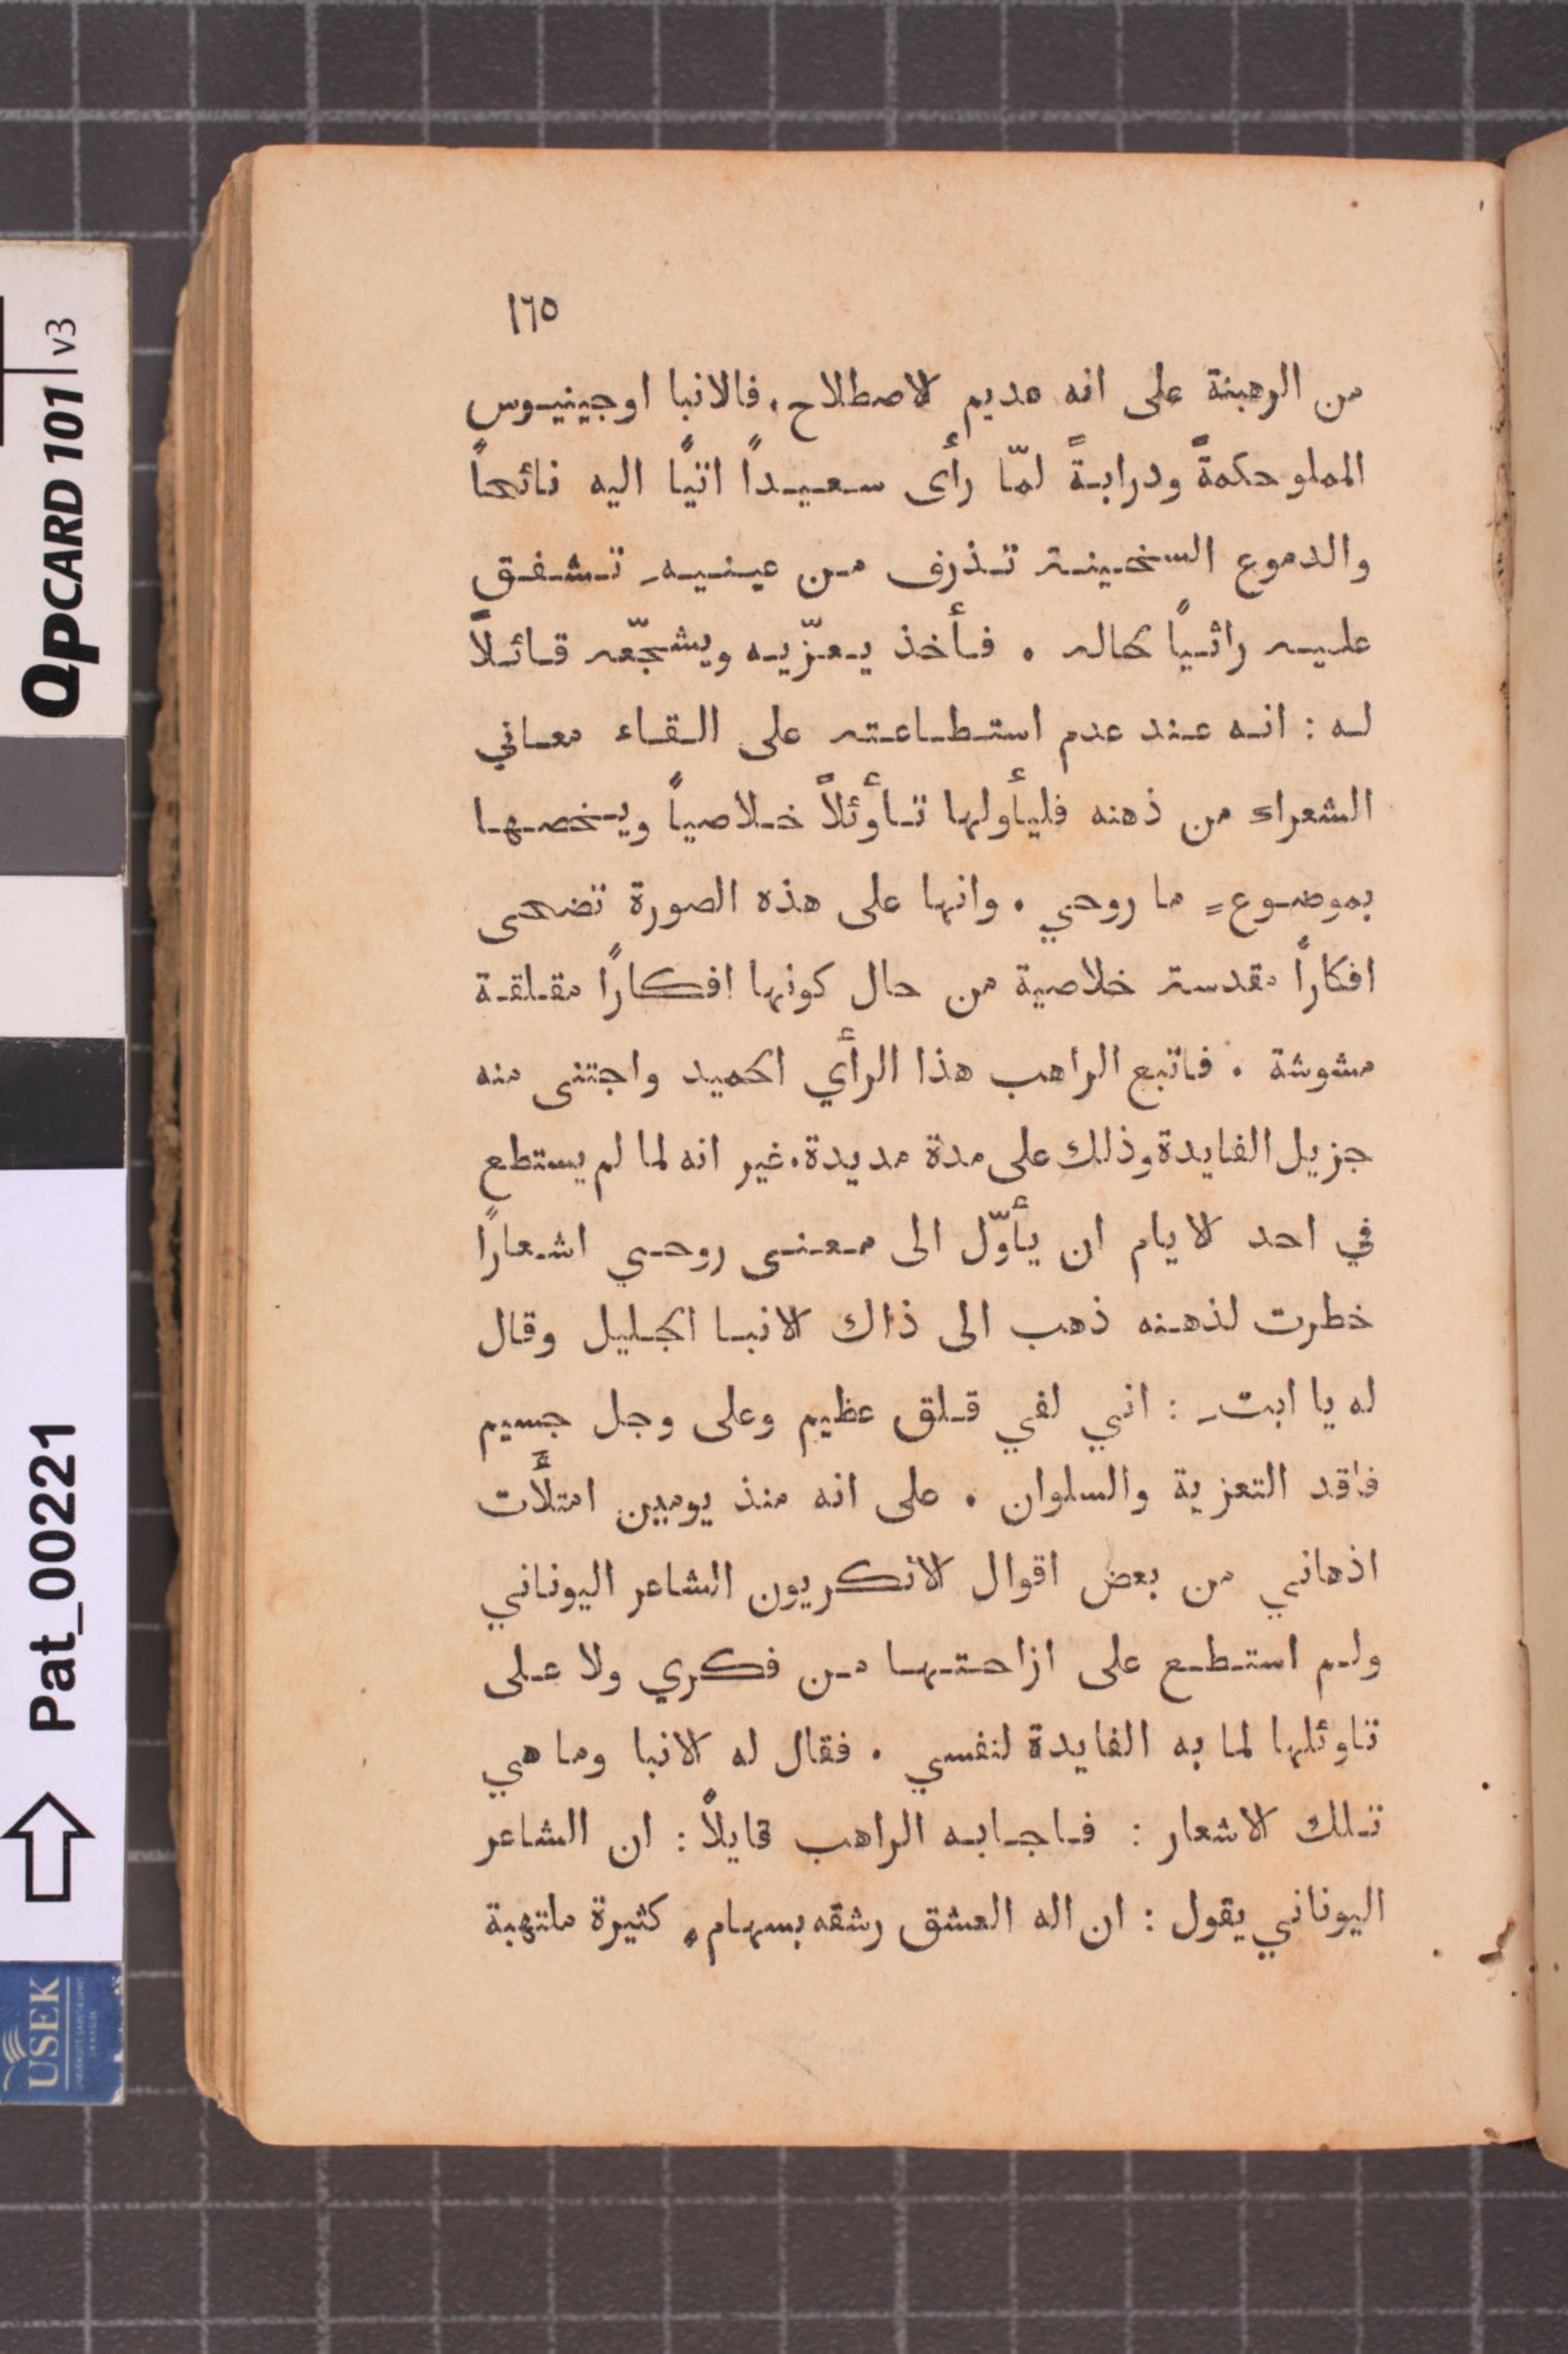 ١٦٥
من الرهبنة على انه عديم الاصطلاح . فالانبا اوجينيوس
المملو حكمةً ودرابةً لمّا رأى سعيداً اتيًا اليه نائحاً
والدموع السخينة تذرف من عينيه تشفق
عليه راثيًا لحاله . فأخذ يعزّيه ويشجّعه قائلاً
له : انه عند عدم استطاعته على القاء معاني
الشعراء من ذهنه فليأولها تأوئلاً خلاصياً ويخصها
بموضوعٍ ما روحي . وانها على هذه الصورة تضحى
افكاراً مقدسة خلاصية من حال كونها افكارًا مقلقة
مشوشة . فاتبع الراهب هذا الرأي الحميد واجتنى منه
جزيل الفايدة وذلك على مدة مديدة . غير انه لما لم يستطع
في احد الايام ان يأوّل الى معنى روحي اشعارًا
خطرت لذهنه ذهب الى ذاك الانبا الجليل وقال
له يا ابتِ : اني لفي قلق عظيم وعلى وجل جسيم
فاقد التعزية والسلوان . على انه منذ يومين امتلأت
اذهاني من بعض اقوال الانكريون الشاعر اليوناني
ولم استطع على ازاحتها من فكري ولا على
تاوئلها لما به الفايدة لنفسي . فقال له الانبا وما هي
تلك الاشعار : فاجابه الراهب قايلاً : ان الشاعر
اليوناني يقول : ان اله العشق رشقه بسهامٍ كثيرة ملتهبة
QPCARD 101 v3
Pat_00221
USEK